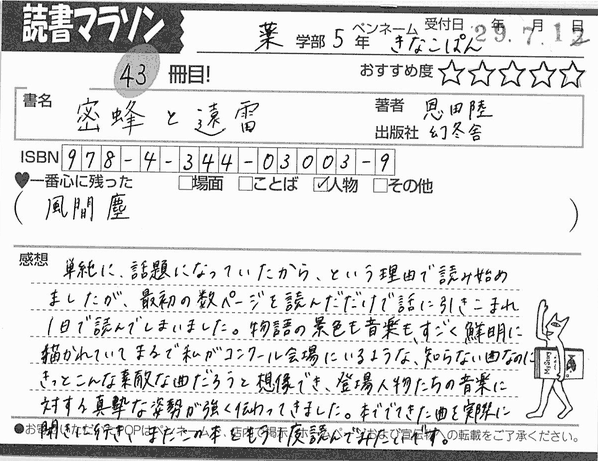 読書マラソン
薬 学部 5 年 ペンネーム きなこぱん 受付日 29.年7.月12日
43 冊目! おすすめ度 ☆☆☆☆☆
書名 蜜蜂と遠雷 著者 恩田陸
出版社 幻冬舎
ISBN 978-4-344-03003-9
♥一番心に残った □場面 □ことば ☑人物 □その他
( 風間塵 )
感想
単純に、話題になっていたから、という理由で読み始め
ましたが、最初の数ページを読んだだけで話に引きこまれ
1日で読んでしまいました。物語の景色も音楽も、すごく鮮明に
描かれていてまるで私がコンクール会場にいるような、知らない曲なのに
きっとこんな素敵な曲だろうと想像でき、登場人物たちの音楽に
対する真摯な姿勢が強く伝わってきました。までできた曲を実際に
聞きに行きて、またこの本をもう1度読んでみたいです。
●お客 POPはペンネーム 店 で掲示 ホームページおよび宣伝物への転載をご了承ください。